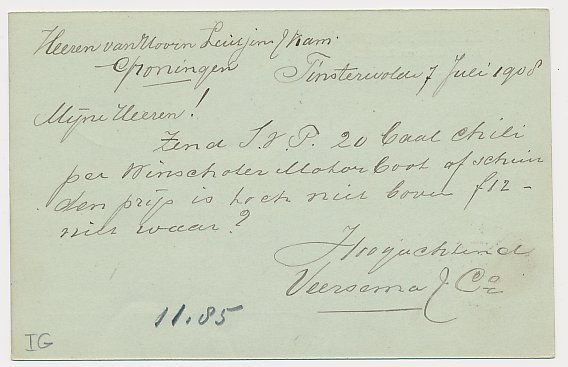 Heeren van Hoorn Luitjen & Kam.
Groningen Finsterwolde 7 Juli 1908
Mijne Heeren!
Zend S.V.P. 20 baal Chili
per Winschoter Motorboot of schuit
den prijs is toch niet boven f12-
niet waar?
Hoogachtend
Veersema & Co
11.85
IG